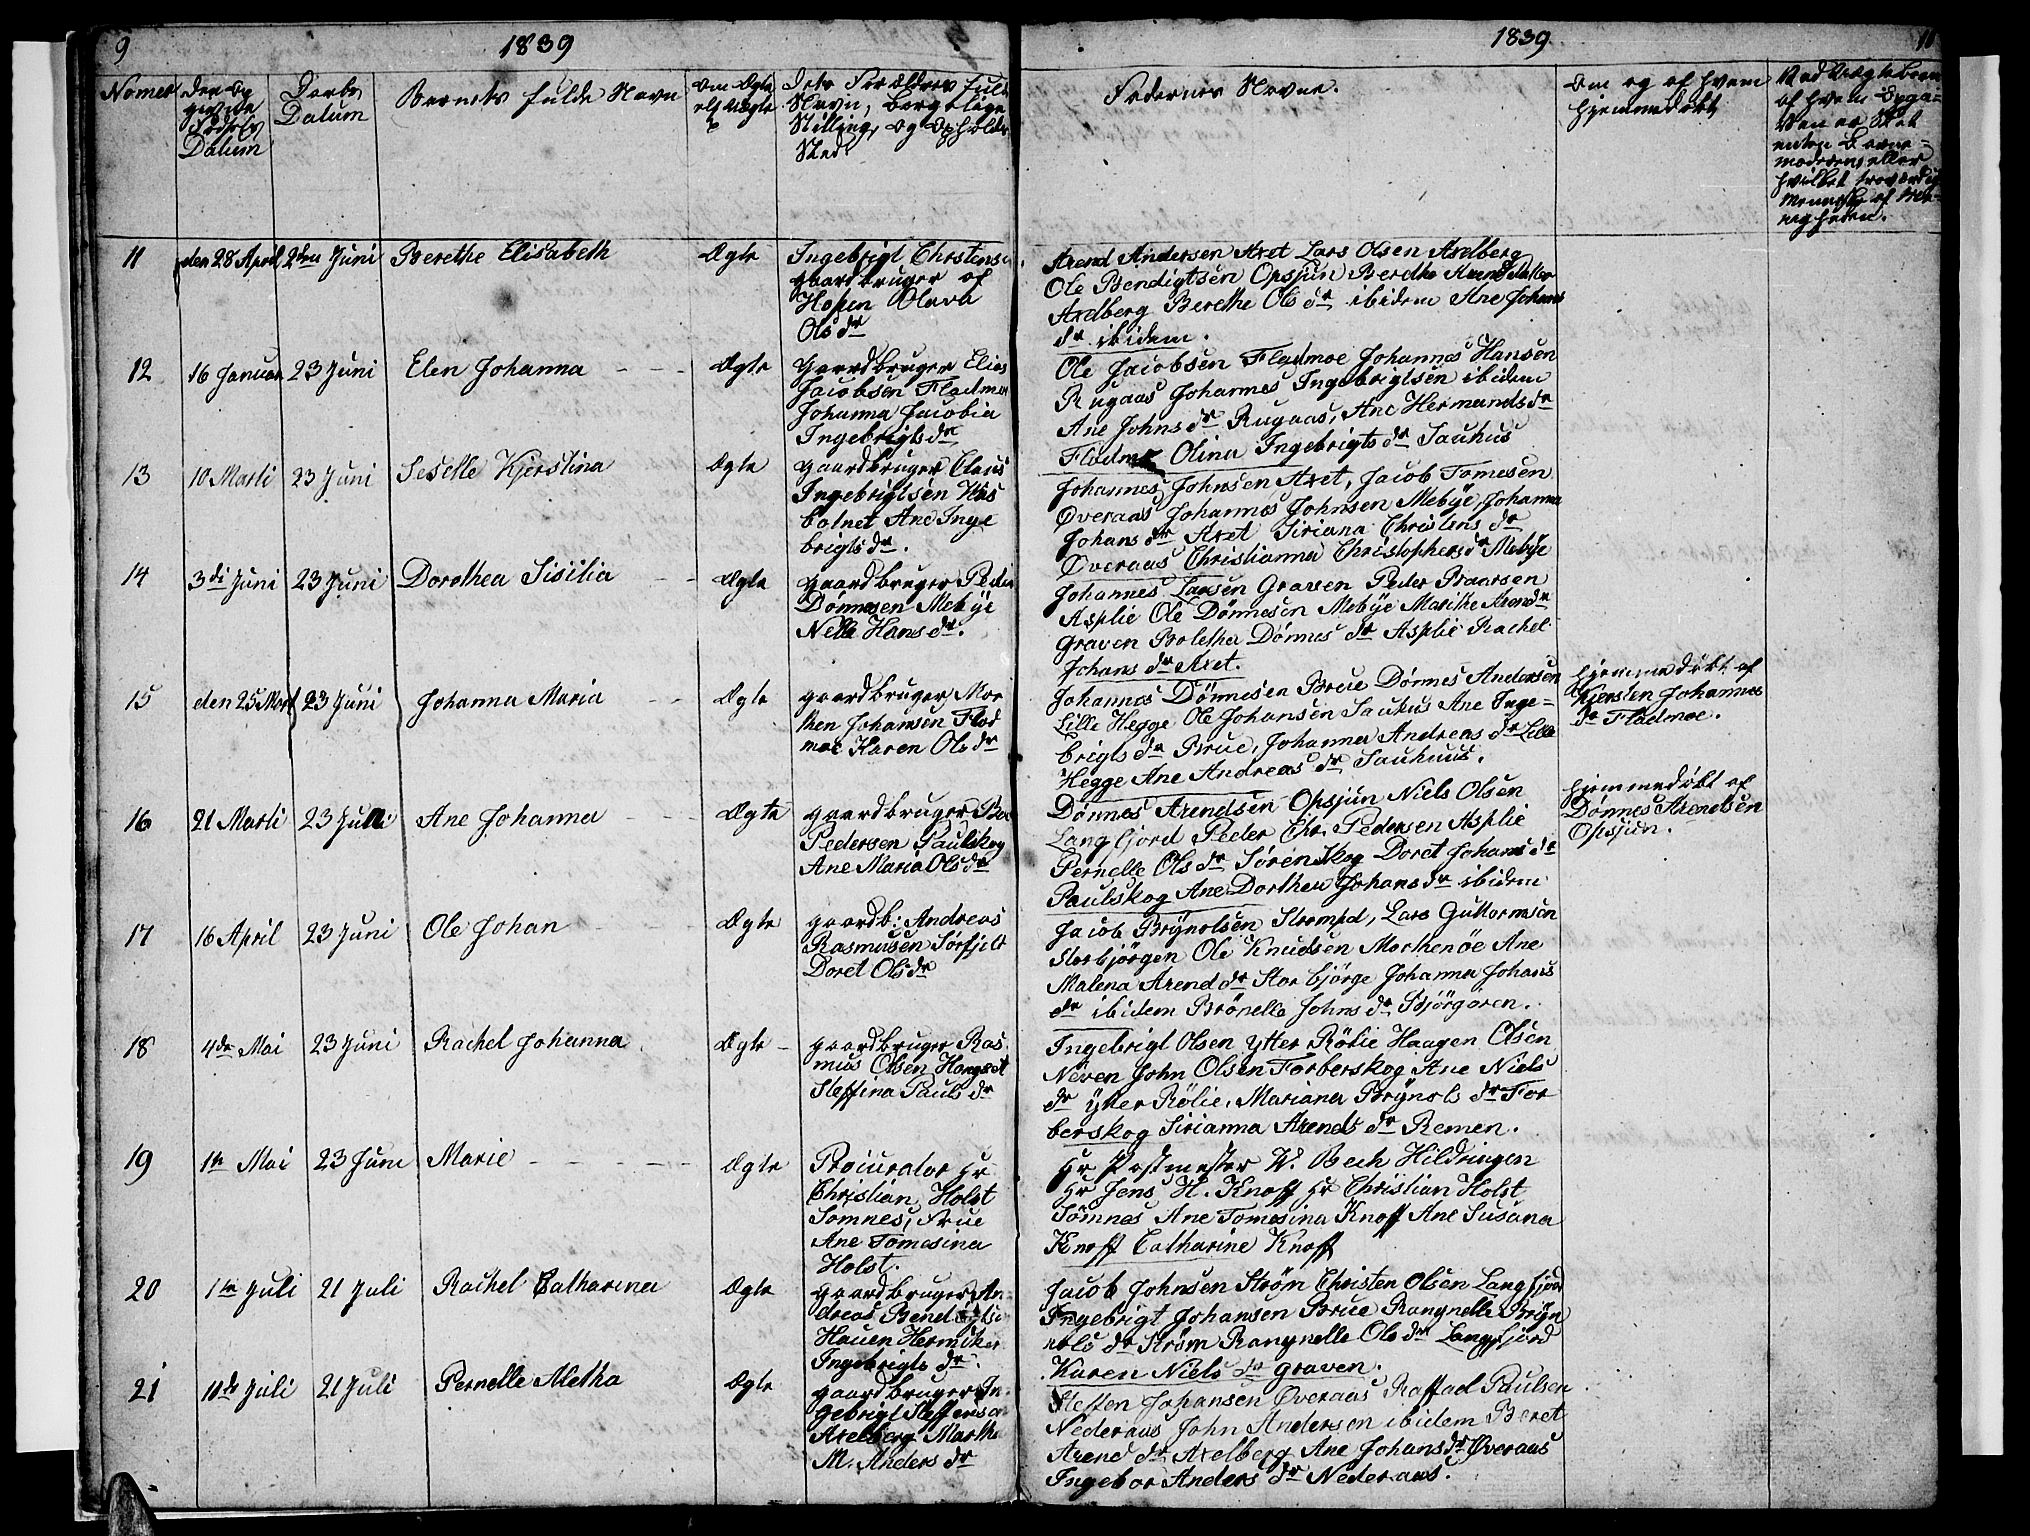 9 1839
1839
Nomer
Daabs
Datum
Barnets fulde Navn
Om Ægte
Stilling, og Opholds
Sted
Fadernes Navne.
Om og af hvem
hjemmedøbt
11 den 28 April 2den Juni Berethe Elisabeth Ægte
Ingebrigt Christens
gaardbruger af
Hofen Olava
Olsdr
Arend Andersen Axet Lars Olsen Axelberg
Ole Bendigtsen Opsjün Berethe Arendsdatter
Axelberg Berethe Olsdr ibidem Ane Johans
dr ibidem.
12 16 Januar 23 Juni Elen Johanna Ægte
gaardbruger Elias
Jacobsen Fladmoe
Johanna Jacobia
Ingebrigtsdr
Ole Jacobsen Fladmoe Johannes Hansen
Rugaas Johannes Ingebrigtsen ibidem
Ane Johnsdr Rugaas, Ane Hermandsdr
Fladmoe Olina Ingebrigtsdr Sauhus
13 10 Marti 23 Juni Seselle Kjerstina Ægte
gaardbruger Claus
Ingebrigtsen Hus
botnet Ane Inge
brigtsdr.
Johannes Johnsen Axet, Jacob Tomesen
Øveraas Johannes Johnsen Mebÿe Johanna
Johansdr Axet Siriana Christensdr
Øveraas Christianna Christophersdr Mebÿe
14 3di Juni 23 Juni Dorothea Sisilia Ægte
gaardbruger Peder
Dønnesen Mebÿe
Nelle Hansdr.
Johannes Larsen Graven Peder Baarsen
Asplie Ole Dønnesen Mebÿe Marithe Arendr
Graven Bolethe Dønnesdr Asplie Rachel
Johansdr Axet.
15 den 25 Marti 23 Juni Johanna Maria Ægte
gaardbruger Mor
then Johansen Flad
moe Karen Olsdr
Johannes Dønnesen Brue Dønnes Andersen
Lille Hegge Ole Johansen Sauhus Ane Inge=
brigtsdr Brue, Johanna Andreasdr Lille
Hegge Ane Andreasdr Sauhuus.
hjemmedøbt af
Kjersten Johannes
dr Fladmoe.
16 21 Marti 23 Juni Ane Johanna Ægte
gaardbruger
Pedersen Paulskog
Ane Maria Olsdr
Dønnes Arendsen Opsjün Niels Olsen
Langfjord Peder Chr. Pedersen Asplie
Pernelle Olsdr Sørenskog Doret Johansdr
Paulskog Ane Dorthea Johansdr ibidem
hjemmedøbt af
Dønnes Arendsen
Opsjün.
17 16 April 23 Juni Ole Johan Ægte
gaardb: Andreas
Rasmusen Sørfjelt
Doret Olsdr
Jacob Brÿnolsen Strompd, Lars Guttormsen
Storbjörgen Ole Knudsen Morthenöe Ane
Malena Arendsdr Storbjörge Johanna Johans
dr ibidem Brönelle Johnsdr Bjørgaren.
18 4de Mai 23 Juni Rachel Johanna Ægte
gaardbruger Ras
mus Olsen Hangset
Steffina Paulsdr
Ingebrigt Olsen Ytter Rölie Haagen Olsen
Neven John Olsen Forberskog Ane Niels
dr Ÿtter Rölie, Mariana Brÿnolsdr For
berskog Sirianna Arendsdr Remen.
19 1te Mai 23 Juni Marie Ægte
Procurator Hr
Christian Holst
Somnes, Frue
Ane Tomesina
Holst.
Hr Postmester W. Bech Hildringen
Hr Jens H. Knoff Hr Christian Holst
Sömnes Ane Tomesina Knoff Ane Susana
Knoff Catharine Knoff
20 1te Juli 21 Juli Rachel Catharina Ægte
gaardbruger An=
dreas Bendigtsen
Hauen
Ingebrigtsdr.
Jacob Johnsen Strøm Christen Olsen Langfjord
Ingebrigt Johansen Brue Rangnelle Brÿn
olsdr Strøm Rangnelle Olsdr Langfjord
Karen Nielsdr Graven.
21 10de Juli 21 Juli Pernelle Metha Ægte
gaardbruger In=
gebrigt Steffensen
Axelberg Marthe
M. Andersdr
Steffen Johansen Øveraas Raffael Paulsen
Nederaas John Andersen ibidem Beret
Arendsdr Axelberg Ane Johansdr Øveraas
Ingebor Andersdr Nederaas.